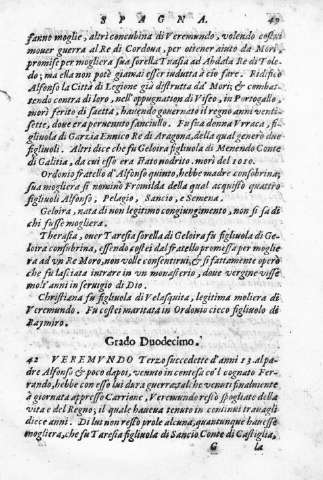 SPAGNA. 49
fanno moglie, altri concubina di Veremundo, volendo costei
mouer guerra al Re di Cordoua, per ottener aiuto da Mori,
promise per mogliera sua sorella Trasia ad Abdala Re di Tole-
do; ma ella non potè giamai esser indutta à ciò fare. Ridificò
Alfonso la Città di Legione già distrutta da' Mori; & combat-
tendo contra di loro, nell'oppugnation di Viseo, in Portogallo,
morì ferito di saetta, hauendo gouernato il regno anni venti-
sette, doue era peruenuto fanciullo. Fu sua donna Vrraca, fi-
gliuola di Garzia Ennico Re di Aragona, della qual generò due
figliuoli. Altri dice che fu Geloira figliuola di Menendo Conte
di Galitia, da cui esso era stato nodrito. morì del 1020.
Ordonio fratello d'Alfonso quinto, hebbe madre consobrina;
sua mogliera si nominò Fronilda della qual acquistò quattro
figliuoli Alfonso, Pelagio, Sancio, e Semena.
Geloira, nata di non legitimo congiungimento, non si sa di
chi fusse mogliera.
Therasia, ouer Taresia sorella di Geloira fu figliuola di Ge-
loira consubrina, essendo costei dal fratello promessa per moglie
ra ad vn Re Moro, non volle consentirui, & si fattamente operò
che fu lasciata intrare in vn monasterio, doue vergine visse
molt'anni in seruigio di Dio.
Christiana fu figliuola di Velasquita, legitima moliera di
Veremundo. Fu costei maritata in Ordonio cieco figliuolo di
Raimiro.
Grado Duodecimo.
42 VEREMVNDO Terzo succedette d'anni 13. al pa-
dre Alfonso & poco dapoi, venuto in contesa co'l cognato Fer-
rando, hebbe con esso lui dura guerra: al che venuti finalmente
à giornata appresso Carrione, Veremundo restò spogliato della
vita e del Regno; il quale haueua tenuto in continui trauagli
diece anni. Di lui non restò prole alcuna, quantunque hauesse
mogliera, che fu Taresia figliuola di Sancio Conte di Castiglia,
G la